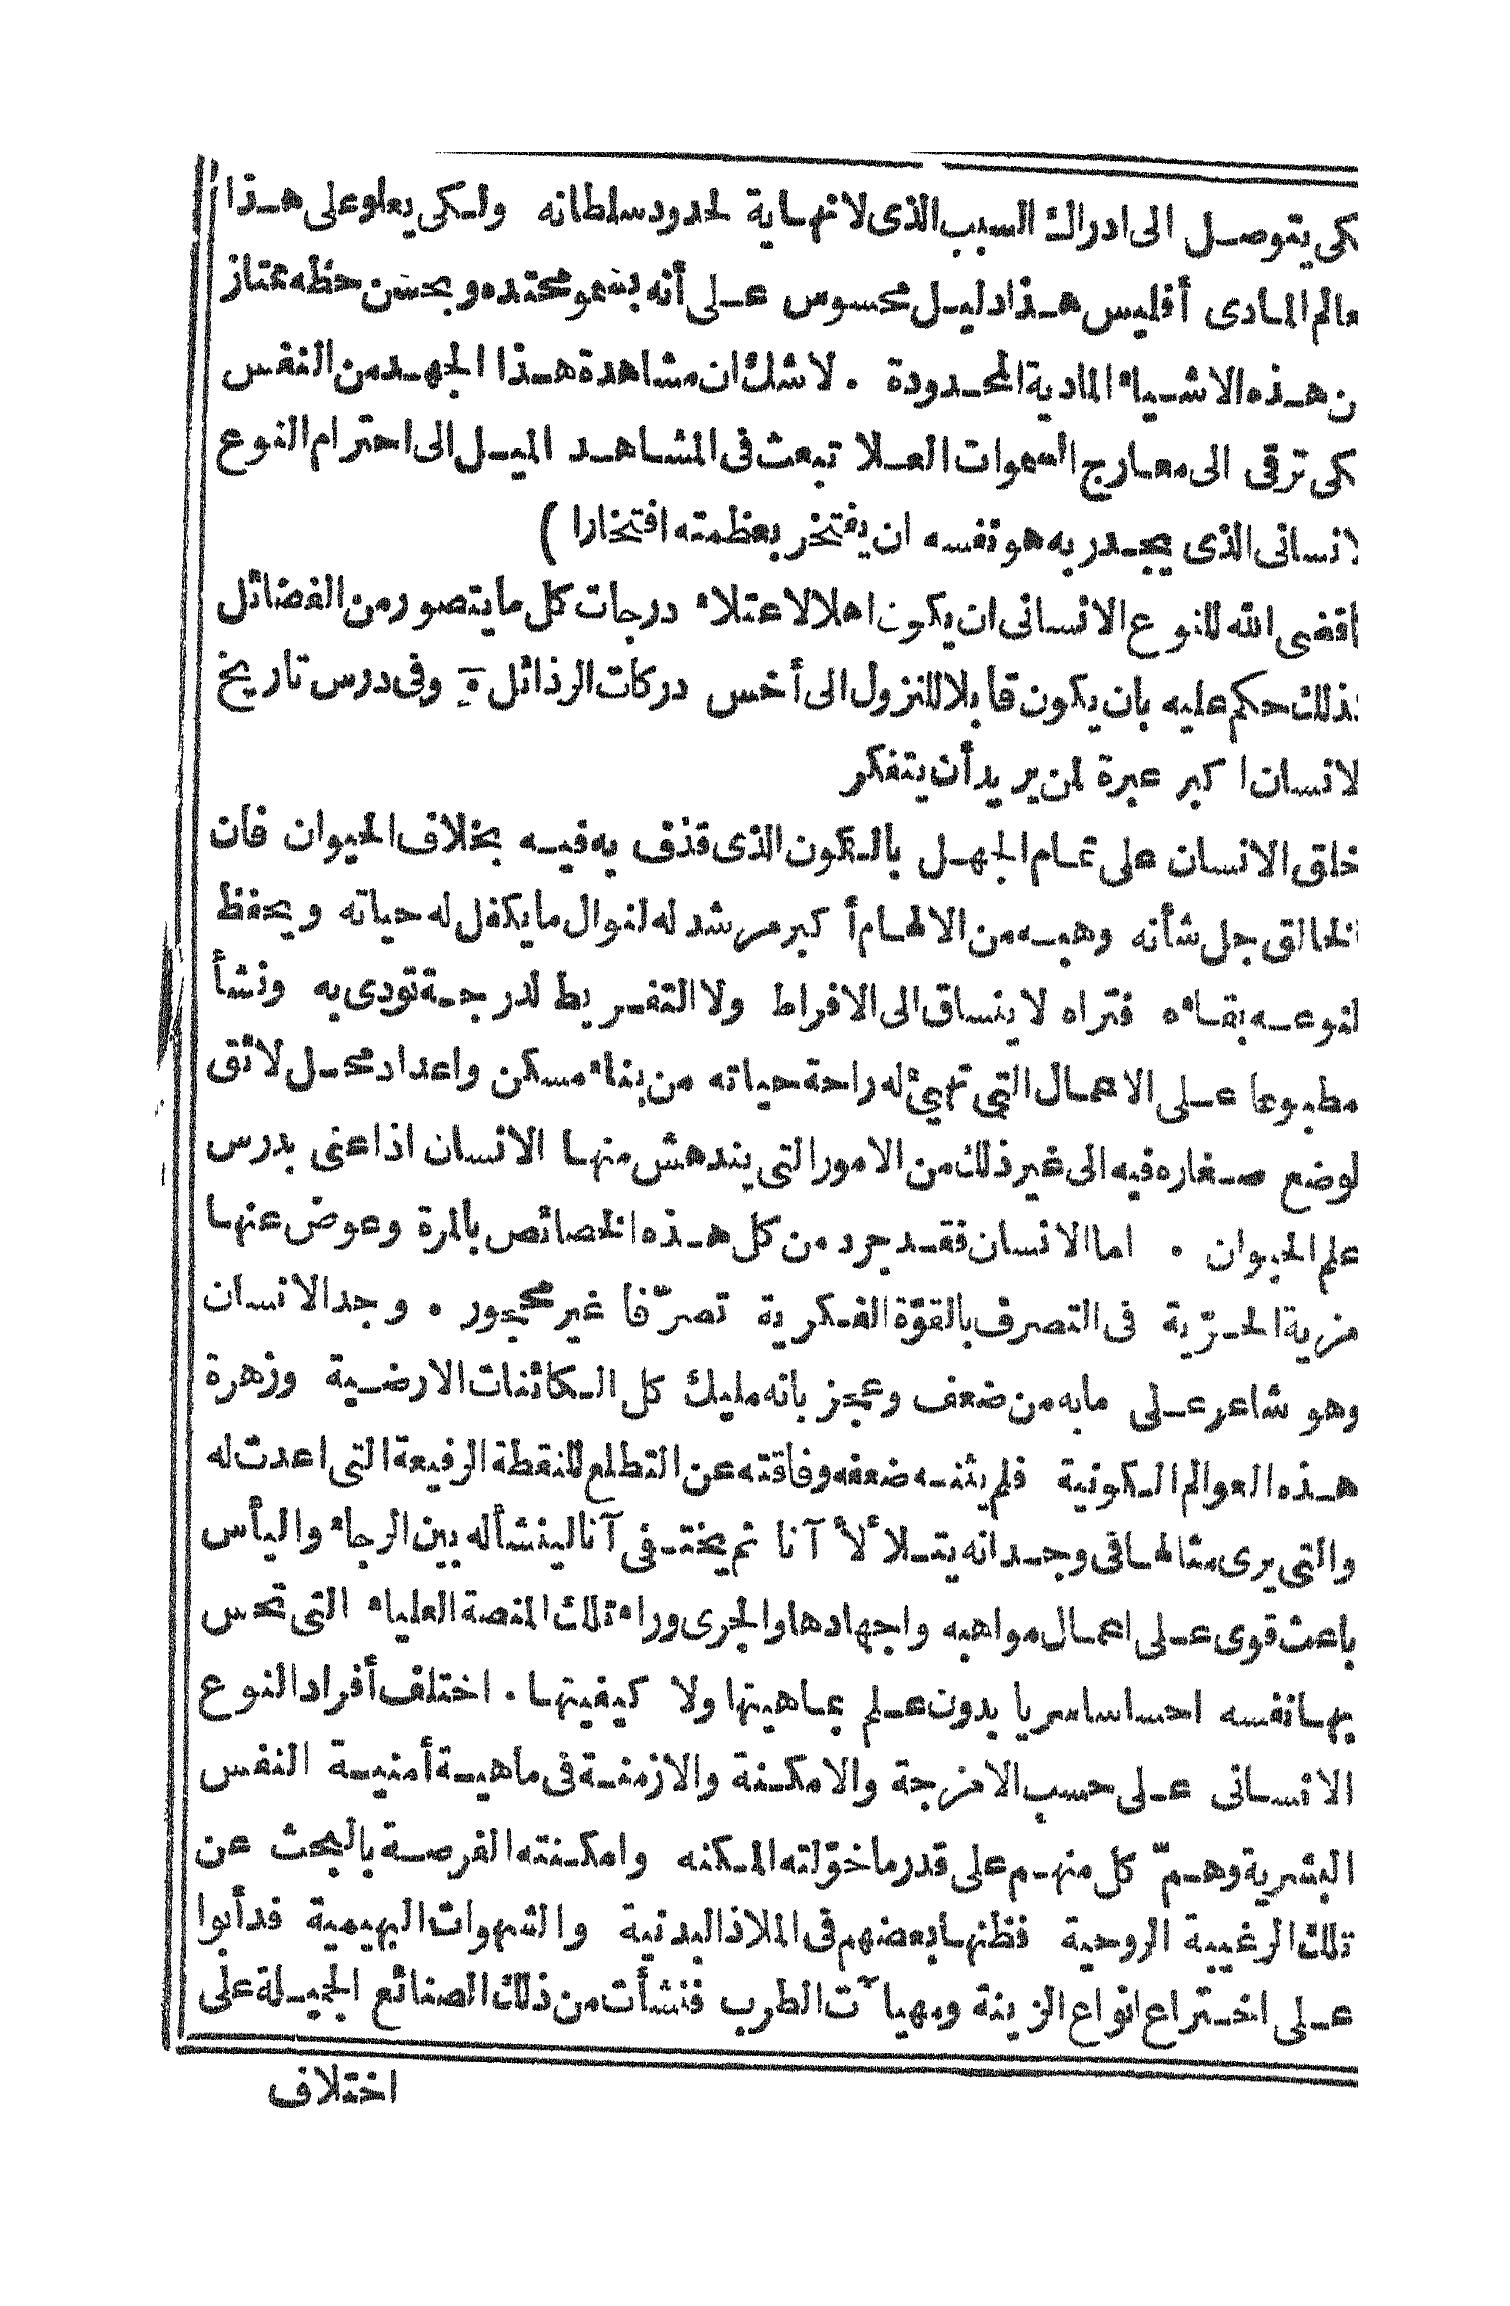 كى يتوصل الى ادراك السبب الذى لا نهاية لحدود سلطانه ولكى يعلو على هذا
عالم المادى أفليس هذا دليل محسوس على أنه بنمو محتده وبحسن حظه ممتاز
ن هذه الاشياء المادية المحدودة . لا شك ان مشاهدة هذا الجهد من النفس
كى ترقى الى معارج السموات العلا تبعث فى المشاهد الميل الى احترام النوع
لانسانى الذى يجدر به هو نفسه ان يفتخر بعظمته افتخارا )
قضى الله للنوع الانسانى ان يكون اهلا لاعتلاء درجات كل ما يتصور من الفضائل
ذلك حكم عليه بان يكون قابلا للنزول الى أخس دركات الرذائل وفى درس تاريخ
لانسان اكبر عبرة لمن يريد أن يتفكر
خلق الانسان على تمام الجهل بالكون الذى قذف به فيه بخلاف الحيوان فان
الخالق جل شأنه وهبه من الالهام أكبر مرشد له لنوال ما يكفل له حياته ويحفظ
لنوعه بقاه فتراه لا ينساق الى الافراط ولا التفريط لدرجة تودى به ونشأ
مطبوعا على الاعمال التى تهيئ له راحة حياته من بناء مسكن واعداد محل لائق
لوضع صغاره فيه الى غير ذلك من الامور التى يندهش منها الانسان اذا عنى بدرس
علم الحيوان . اما الانسان فقد جرد من كل هذه الخصائص بالمرة وعوض عنها
مزية الحرّية فى التصرف بالقوّة الفكرية تصرّفا غير محجور . وجد الانسان
وهو شاعر على ما به من ضعف وعجز بانه مليك كل الكائنات الارضية وزهرة
هذه العوالم الكونية فلم يثنه ضعفه وفاقته عن التطلع للنقطة الرفيعة التى اعدت له
والتى يرى مثالها فى وجدانه يتلألأ آنا ثم يختفى آنا لينشأ له بين الرجاء والياس
باعث قوى على اعمال مواهبه واجهادها والجرى وراء تلك المنصة العلياء التى تحس
بها نفسه احساسا سريا بدون علم بماهيتها ولا كيفيتها . اختلف أفراد النوع
الانسانى على حسب الامزجة والامكنة والازمنة فى ماهية أمنية النفس
البشرية وهمّ كل منهم على قدر ما خوّلته المكنه وامكنته الفرصة بالبحث عن
تلك الرغيبة الروحية فظنها بعضهم فى الملاذ البدنية والشهوات البهيمية فدأبوا
على اختراع انواع الزينة ومهيآت الطرب فنشأت من ذلك الصنائع الجميلة على
اختلاف